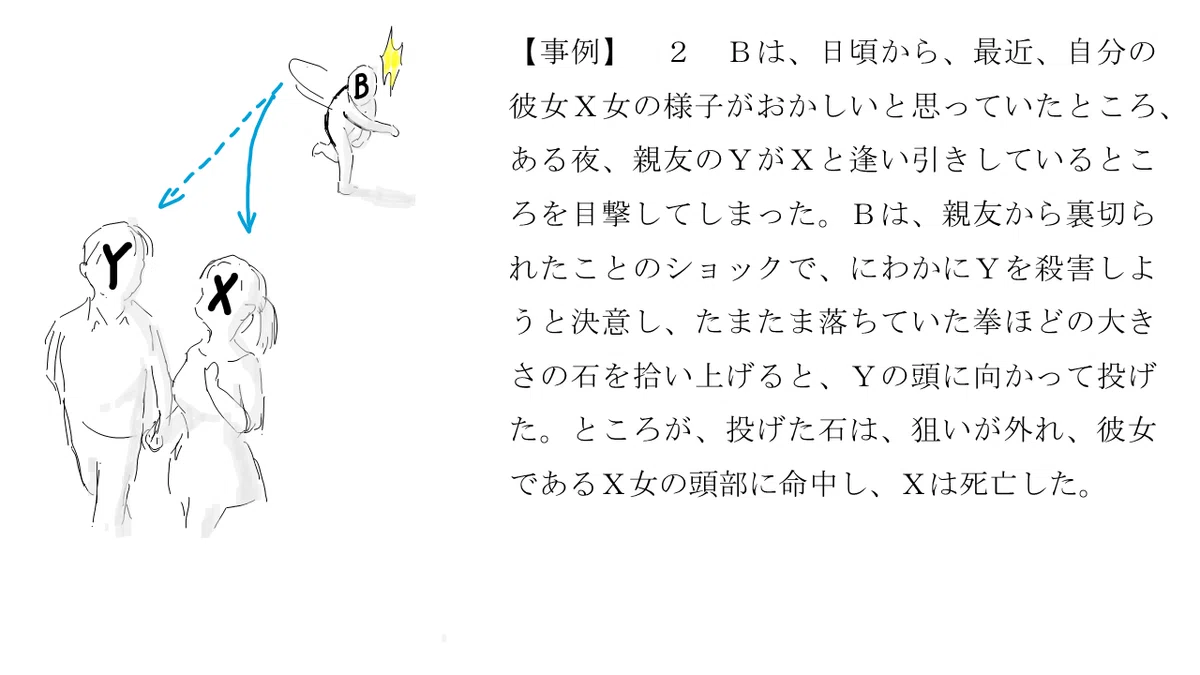 B
Y
X
【事例】　２　Ｂは、日頃から、最近、自分の
彼女Ｘ女の様子がおかしいと思っていたところ、
ある夜、親友のＹがＸと逢い引きしているとこ
ろを目撃してしまった。Ｂは、親友から裏切ら
れたことのショックで、にわかにＹを殺害しよ
うと決意し、たまたま落ちていた拳ほどの大き
さの石を拾い上げると、Ｙの頭に向かって投げ
た。ところが、投げた石は、狙いが外れ、彼女
であるＸ女の頭部に命中し、Ｘは死亡した。